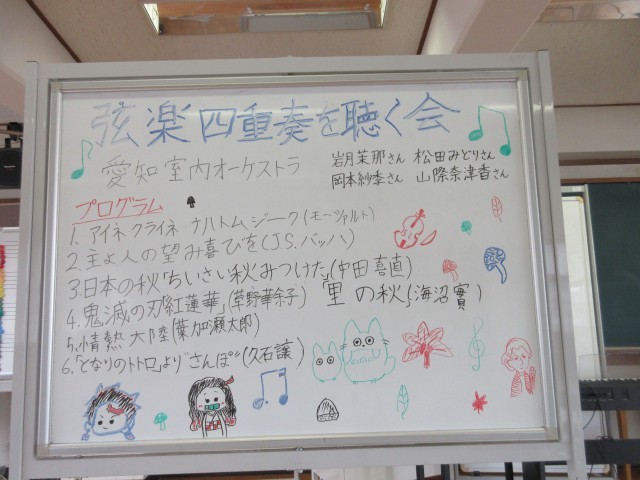 弦楽四重奏を聴く会
愛知室内オーケストラ
岩月茉那さん 松田みどりさん
岡本紗季さん 山際奈津香さん
プログラム
1. アイネ クライネ ナハトムジーク(モーツァルト)
2. 主よ人の望み喜びを(J.S.バッハ)
3. 日本の秋「ちいさい秋みつけた」(中田喜直)
「里の秋」(海沼實)
4. 鬼滅の刃「紅蓮華」(草野華余子)
5. 情熱大陸(葉加瀬太郎)
6. 「となりのトトロ」より"さんぽ"(久石譲)